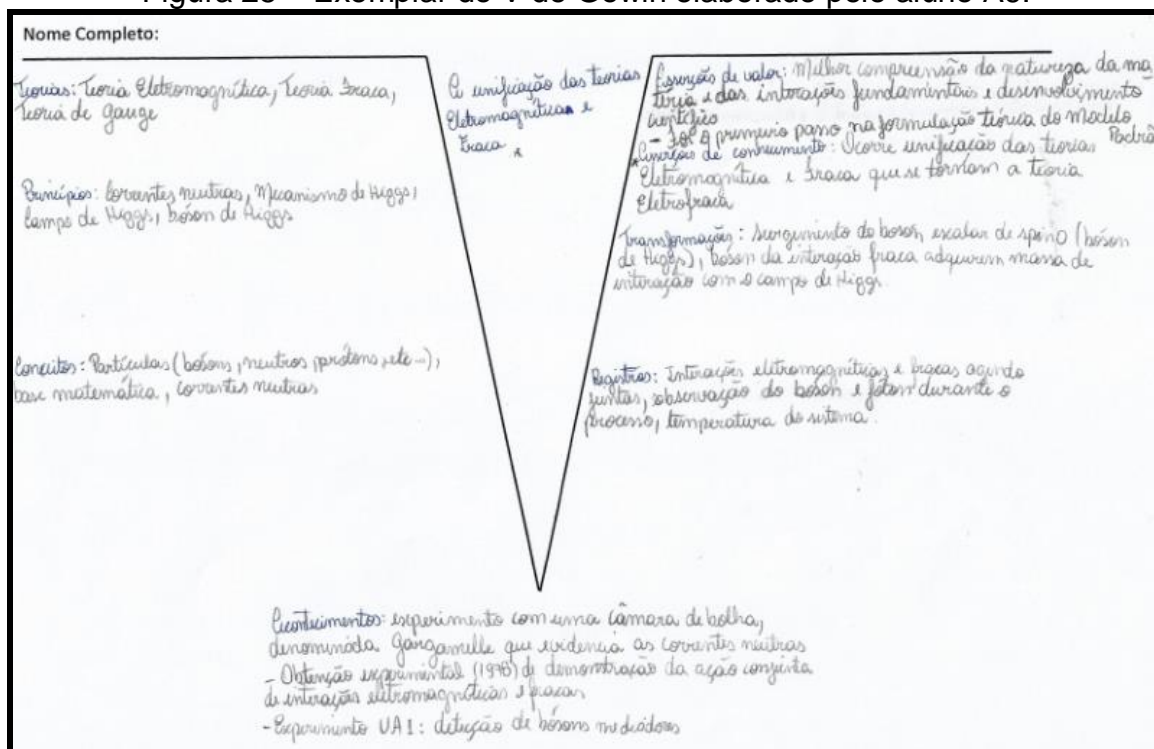 Figura 28 – Exemplar do V de Gowin elaborado pelo aluno A6.
Nome Completo:
Teorias: Teoria Eletromagnética, Teoria Fraca,
Teoria de gauge
Princípios: Correntes neutras, Mecanismo de Higgs,
Campo de Higgs, bóson de Higgs
Conceitos: Partículas (bósons, neutros, prótons, etc...),
base matemática, correntes neutras
A unificação das teorias
Eletromagnética e
Fraca
Asserções de valor: Milhor compreensão da natureza da ma
téria e das interações fundamentais e desenvolvimento
científico
- Foi o primeiro passo na formulação teórica do Modelo Padrão
Asserções de conhecimento: Ocorre unificação das teorias
Eletromagnética e Fraca que se tornam a teoria
Eletrofraca
Transformações: Surgimento do boson, escalar de spin 0 (bóson
de Higgs), boson da interação fraca adquirem massa de
interação com o campo de Higgs.
Registros: Interações eletromagnéticas e fracas agindo
juntas, observação do bóson e fóton durante o
processo, temperatura do sistema.
Acontecimentos: experimento com uma câmara de bolha,
denominada Gargamelle que evidencia as correntes neutras
- Obtenção experimental (1978) de demonstração da ação conjunta
de interações eletromagnéticas e fracas
- Experimento UA1: detecção de bósons mediadores